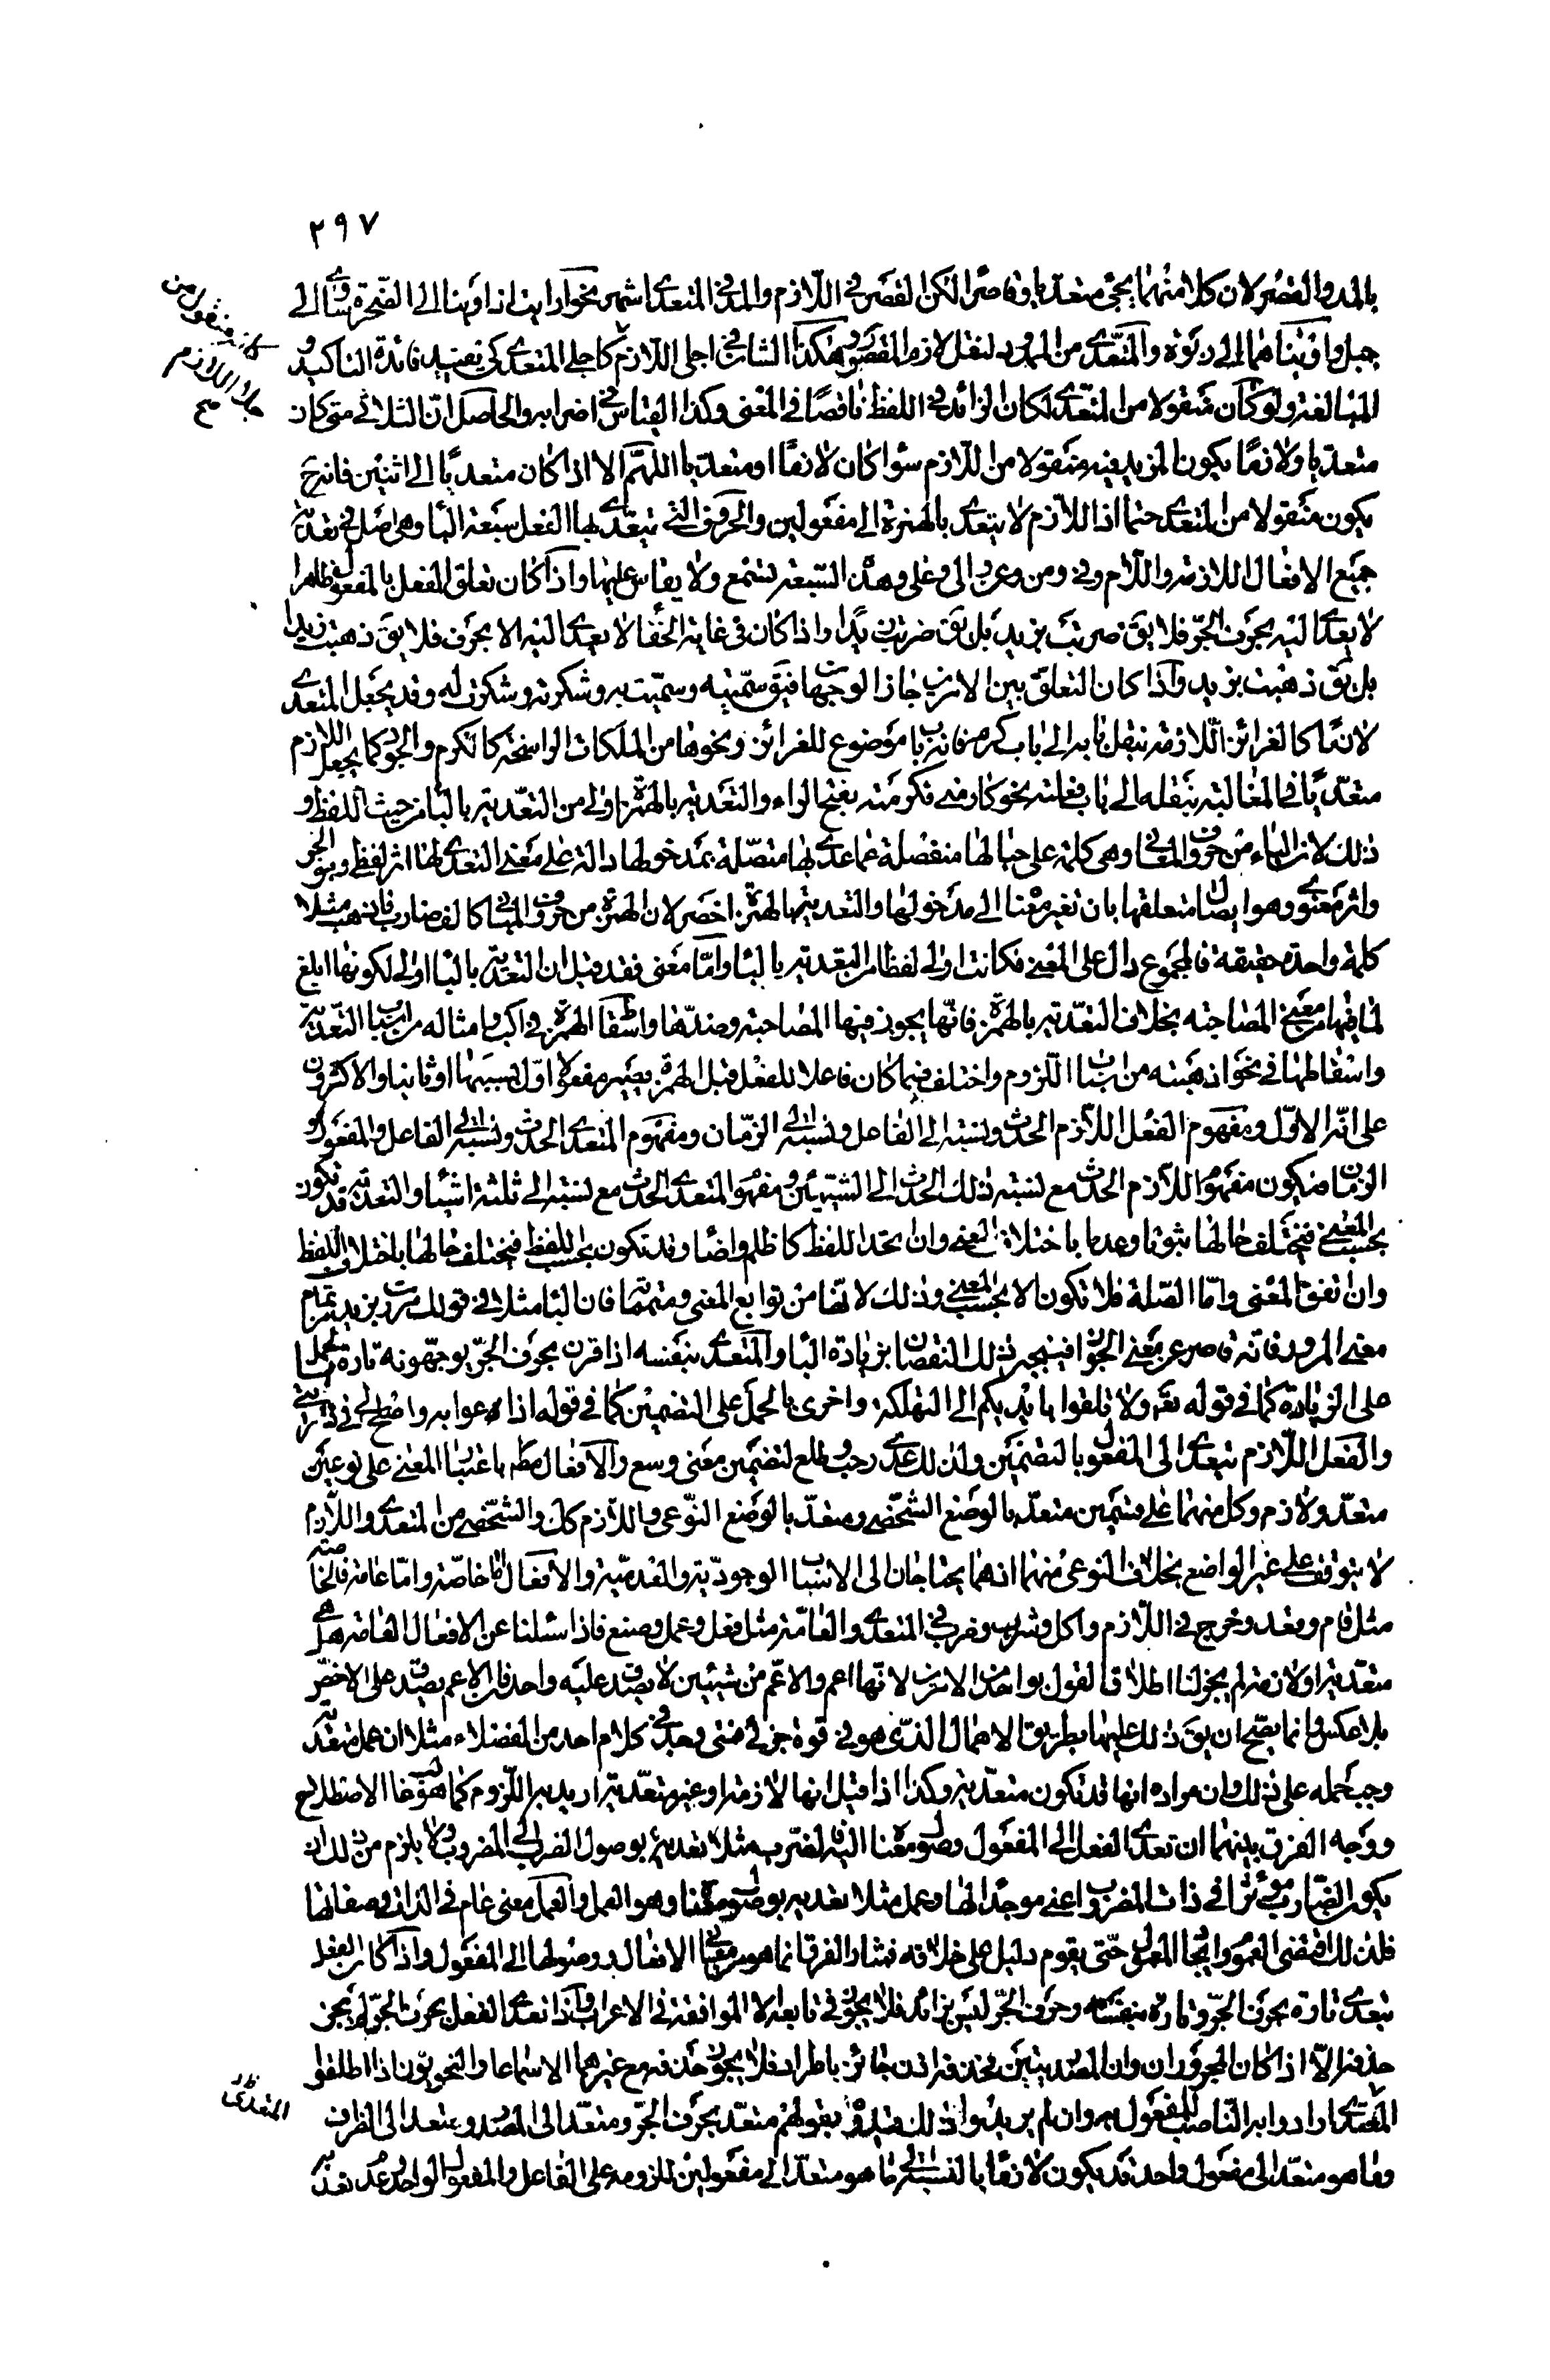 ٢٩٧
بالمد والقصر لان كلا منهما يجئ متعديا وقاصرا لكن القصر في اللازم والمد في المتعدى اشهر نحو ارايت اذ اوينا الى الصخرة وساوى الى
جبل واويناهما الى ربوة والمتعدى من الممدود لنقل لازم المقصور وهكذا الشان في اجلى اللازم كاجلى المتعدى كى تفيد فائدة التاكيد و
المبالغة ولو كان منقولا من المتعدى لكان الزائد في اللفظ ناقصا في المعنى وكذا القياس في اضرابه والحاصل ان الثلاثى متى كان
متعديا ولازما يكون المزيد فيه منقولا من اللازم سواء كان لازما او متعديا اللهم الا اذا كان متعديا الى اثنين فانه ح
يكون منقولا من المتعدى حتما اذ اللازم لا يتعدى بالهمزة الى مفعولين والحروف التى يتعدى بها الفعل سبعة البا وهى اصل في تعدية
جميع الافعال اللازمة واللام وفى ومن وعن والى وعلى وهذه السبعة تسمع ولا يقاس عليها واذا كان تعلق الفعل بالمفعول ظاهرا
لا يعدى اليه بحرف الجر فلا يق ضربت بزيد بل يق ضربت زيدا واذا كان في غاية الخفا لا يعدى اليه الا بحرف فلا يق ذهبت زيدا
بل يق ذهبت بزيد واذا كان التعلق بين الامرين جاز الوجهان فيق سميته وسميت به وشكرته وشكرت له وقد يجعل المتعدى
لازما كالغرائز اللازمة بنقل بابه الى باب كرم فانه باب موضوع للغرائز ونحوها من الملكات الراسخة كالكرم والجود كما يجعل اللازم
متعديا في المغالبة بنقله الى باب فعلته نحو كارمنى فكرمته بفتح الراء والتعدية بالهمزة اولى من التعدية بالبا من حيث اللفظ و
ذلك لان الباء من حروف المعانى وهى كلمة على حيالها منفصلة عما عدى بها متصلة بمدخولها دالة على معنى التعدى لها اثر لفظى وهو الجر
واثر معنوى وهو ايصال متعلقها بان تغير معناه الى مدخولها والتعدية بالهمزة اخصر لان الهمزة من حروف المبانى كالف ضارب فاذهب مثلا
كلمة واحدة حقيقة فالمجموع دال على المعنى فكانت اولى لفظا من التعدية بالبا واما معنى فقد قيل ان التعدية بالبا اولى لكونها ابلغ
لما فيها من معنى المصاحبة بخلاف التعدية بالهمزة فانها يجوز فيها المصاحبة وضدها واسقاط الهمزة في اكب وامثاله من اسباب التعدية
واسقاطها في نحو اذهبته من اسباب اللزوم واختلف فيما كان فاعلا للفعل قبل الهمزة يصير مفعولا اول بسببها او ثانيا والاكثرون
على انه الاول ومفهوم الفعل اللازم الحدث ونسبته الى الفاعل ونسبته الى الزمان ومفهوم المتعدى الحدث ونسبته الى الفاعل والمفعول و
الزمان فيكون مفهوم اللازم الحدث مع نسبة ذلك الحدث الى الشيئين ومفهوم المتعدى الحدث مع نسبته الى ثلثة اشيا والتعدية قد تكون
بحسب المعنى فيختلف حالها ثبوتا وعدما باختلاف المعنى وان اتحد اللفظ كاظلم واضا وقد تكون بحسب اللفظ فيختلف حالها باختلاف اللفظ
وان اتفق المعنى واما الصلة فلا تكون الا بحسب المعنى وذلك لانها من توابع المعنى ومتمماته فان البا مثلا في قولك مررت بزيد من تمام
معنى المرور فانه قاصر عن معنى الجواز فينجبر ذلك النقصان بزيادة البا والمتعدى بنفسه اذا قرن بحرف الجر يوجهونه تارة بالحمل
على الزيادة كما في قوله تعه ولا تلقوا بايديكم الى التهلكة واخرى بالحمل على التضمين كما في قوله اذاعوا به واصلح لى في ذريتى
والفعل اللازم يتعدى الى المفعول بالتضمين ولذلك عدى رحب وطلع لتضمين معنى وسع والافعال مط باعتبار المعنى على نوعين
متعد ولازم وكل منهما على قسمين متعد بالوضع الشخصى ومتعد بالوضع النوعى واللازم كك والشخصى من المتعدى واللازم
لا يتوقف على غير الواضع بخلاف النوعى منهما اذ هما يحتاجان الى الاسباب الوجودية والعدمية والافعال اما خاصة واما عامة فالخاصة
مثل قام وقعد وخرج في اللازم واكل وشرب وضرب في المتعدى والعامة مثل فعل وعمل وصنع فاذا سئلنا عن الافعال العامة هل هى
متعدية او لازمة لم يجز لنا اطلاق القول بواحد من الامرين لانها اعم والاعم من شيئين لا يصدق عليه واحد فان الاعم يصدق على الاخص
بلا عكس وانما يصح ان يق ذلك عليها بطريق الاهمال الذى هو في قوة جزئى فمتى وجد في كلام احد من الفضلاء مثلا ان عمل متعدية
وجب حمله على ذلك وان مراده انها قد تكون متعدية وكذا اذا قيل انها لازمة او غير متعدية اريد به اللزوم كما هو في الاصطلاح
ووجه الفرق بينهما ان تعدى الفعل الى المفعول وصول معناه اليه فالضرب مثلا تعديته بوصول الضرب الى المضروب ولا يلزم من ذلك ان
يكون الضارب مؤثرا في ذات المضروب اعنى موجدا لها وعمل مثلا تعديه بوصول معناه وهو العمل والعمل معنى عام في الذات وصفاتها
فلذلك اقتضى العموم وايجاد المعمول حتى يقوم دليل على خلافه فمثار الفرق انما هو من معانى الافعال ووصولها الى المفعول واذا كان الفعل
يتعدى تارة بحرف الجر وتارة بنفسه وحرف الجر ليس بزائد فلا يجوز في تابعه الا الموافقة في الاعراب واذا تعدى الفعل بحرف الجر لم يجز
حذفه الا اذا كان المجرور ان وان المصدريتين فحذفه اذن جائز باطراد فلا يجوز حذفه مع غيرهما الا سماعا والنحويون اذا اطلقوا
المتعدى ارادوا به الناصب للمفعول به وان لم يريدوا ذلك قيدوه بقولهم متعد بحرف الجر ومتعد الى المصدر ومتعد الى الظرف
وما هو متعد الى مفعول واحد قد يكون لازما بالنسبة الى ما هو متعد الى مفعولين للزومه على الفاعل والمفعول الواحد وعدم تعديه
كانه منقول من
جار اللازم
صح
المتعدى